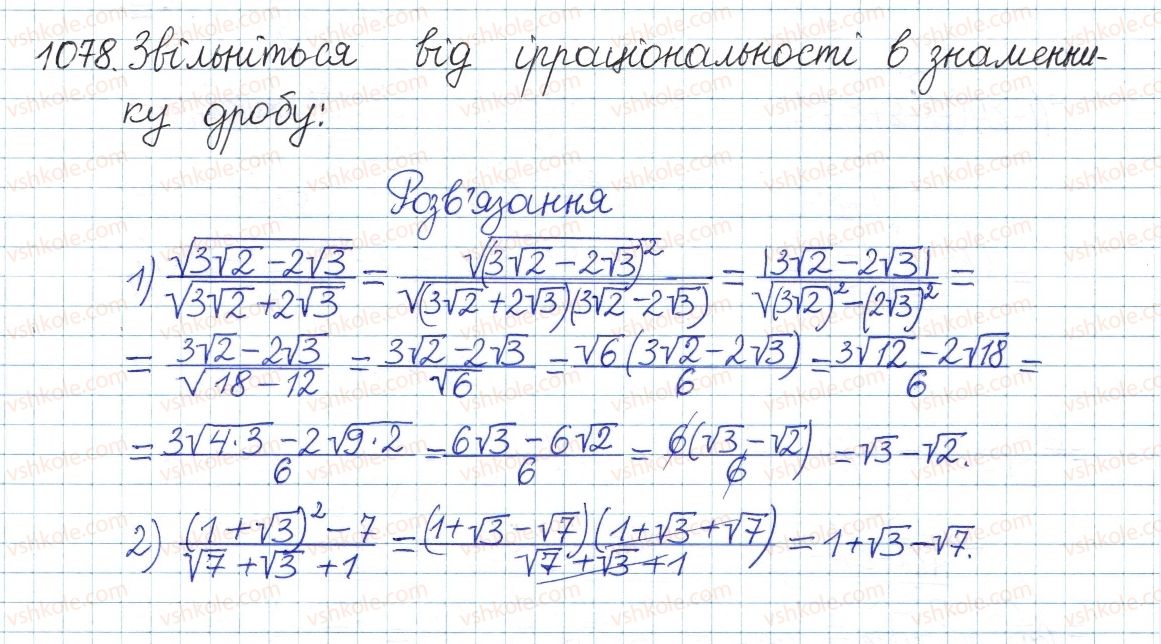 1078. Звільніться від ірраціональності в знаменни-
ку дробу:
Розв'язання
1) √(3√2 - 2√3) / √(3√2 + 2√3) = √((3√2 - 2√3)²) / √((3√2 + 2√3)(3√2 - 2√3)) = |3√2 - 2√3| / √((3√2)² - (2√3)²) =
= (3√2 - 2√3) / √(18 - 12) = (3√2 - 2√3) / √6 = √6(3√2 - 2√3) / 6 = (3√12 - 2√18) / 6 =
= (3√(4·3) - 2√(9·2)) / 6 = (6√3 - 6√2) / 6 = 6(√3 - √2) / 6 = √3 - √2.
2) ((1 + √3)² - 7) / (√7 + √3 + 1) = (1 + √3 - √7)(1 + √3 + √7) / (√7 + √3 + 1) = 1 + √3 - √7.